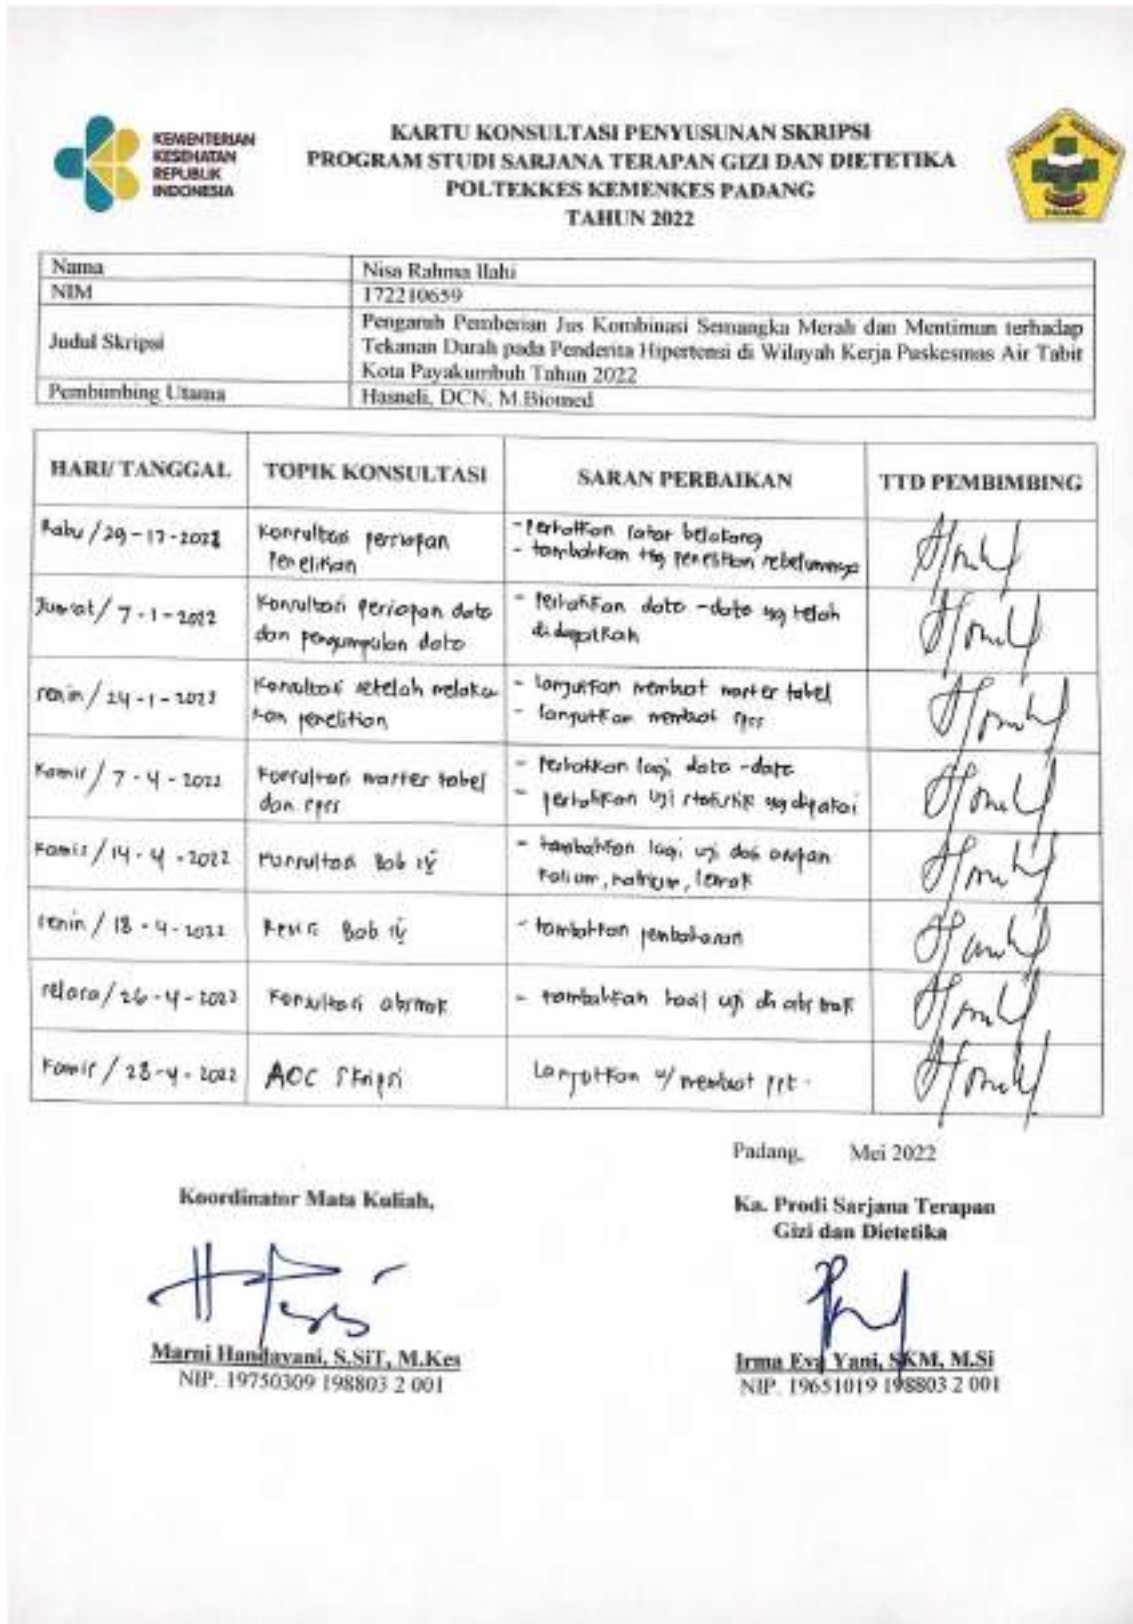 KEMENTERIAN
KESEHATAN
REPUBLIK
INDONESIA
KARTU KONSULTASI PENYUSUNAN SKRIPSI
PROGRAM STUDI SARJANA TERAPAN GIZI DAN DIETETIKA
POLTEKKES KEMENKES PADANG
TAHUN 2022
PADANG
Nama Nisa Rahma Ilahi
NIM 172210659
Judul Skripsi Pengaruh Pemberian Jus Kombinasi Semangka Merah dan Mentimun terhadap
Tekanan Darah pada Penderita Hipertensi di Wilayah Kerja Puskesmas Air Tabit
Kota Payakumbuh Tahun 2022
Pembimbing Utama Hasneli, DCN, M.Biomed
HARI/ TANGGAL TOPIK KONSULTASI SARAN PERBAIKAN TTD PEMBIMBING
Rabu / 29 - Konsultasi persiapan - Perbaikan latar belakang
Penelitian - tambahkan ttg penelitian sebelumnya
Jum'at / 7 - 1 - 2022 Konsultasi persiapan data - Perbaikan data - data yg telah
dan pengumpulan data didapatkan
senin / 24 - 1 - 2022 Konsultasi setelah melaku - lanjutkan membuat master tabel
kan penelitian - lanjutkan membuat spss
Kamis / 7 - 4 - 2022 Konsultasi master tabel - Perbaikan lagi data - data
dan spss - perbaikan uji statistik yg dipakai
Kamis / 14 - 4 - 2022 Konsultasi Bab IV - tambahkan lagi uji dari asupan
kalium, natrium, lemak
senin / 18 - 4 - 2022 Revisi Bab IV - tambahkan pembahasan
selasa / 26 - 4 - 2022 Konsultasi abstrak - tambahkan hasil uji di abstrak
Kamis / 28 - 4 - 2022 ACC Skripsi Lanjutkan u/ membuat ppt.
Padang, Mei 2022
Koordinator Mata Kuliah, Ka. Prodi Sarjana Terapan
Gizi dan Dietetika
Marni Handayani, S.SiT, M.Kes Irma Eva Yani, SKM, M.Si
NIP. 19750309 198803 2 001 NIP. 19651019 198803 2 001